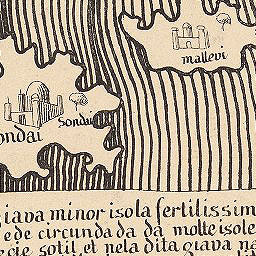 mallevi
sondai
ondai
giava minor isola fertilissim
e de circundada da molte isole
ecie sotil et nela dita giava na